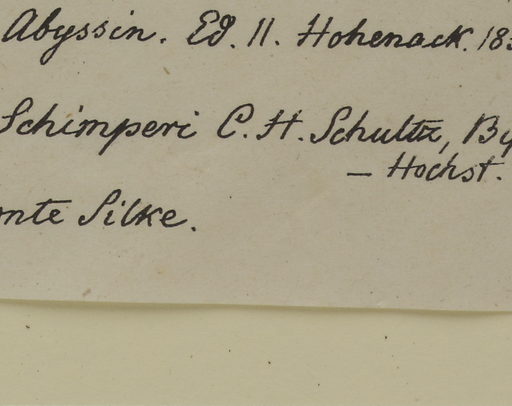 Abyssin. Ed. II. Hohenack. 185
Schimperi C. H. Schultz, By
— Hochst.
onte Silke.